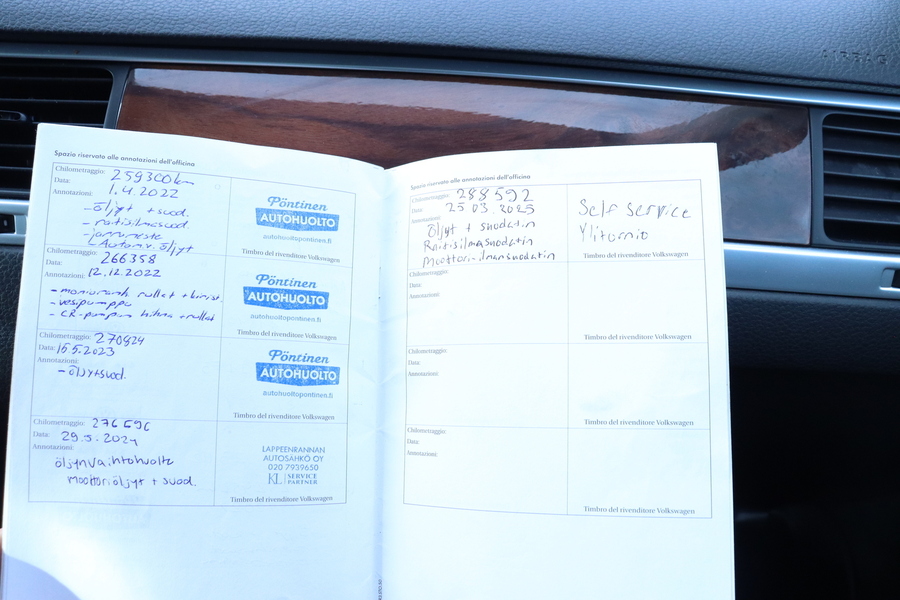 AIRBAG
Spazio riservato alle annotazioni dell'officina
Chilometraggio: 259300km
Data: 1.4.2022
Annotazioni:
- öljyt + suod.
- raitisilmasuod
- jarruneste
Autom.v. öljyt
Pöntinen
AUTOHUOLTO
autohuoltopontinen.fi
Timbro del rivenditore Volkswagen
Chilometraggio: 266358
Data:
Annotazioni: 12.12.2022
- moniurah. rullat + kirist.
- vesipumppu
- CR-pumpun hihna + rullat
Pöntinen
AUTOHUOLTO
autohuoltopontinen.fi
Timbro del rivenditore Volkswagen
Chilometraggio: 270924
Data: 15.5.2023
Annotazioni:
- öljyt+suod.
Pöntinen
AUTOHUOLTO
autohuoltopontinen.fi
Timbro del rivenditore Volkswagen
Chilometraggio: 276590
Data: 29.5.2024
Annotazioni:
öljynvaihtohuolto
moottoriöljyt + suod.
LAPPEENRANNAN
AUTOSÄHKÖ OY
020 7939650
KL SERVICE PARTNER
Timbro del rivenditore Volkswagen
Spazio riservato alle annotazioni dell'officina
Chilometraggio: 288592
Data: 25 03.2025
Annotazioni:
Öljyt + suodatin
Raitisilmasuodatin
Moottori-ilmansuodatin
Self Service
Ylitornio
Timbro del rivenditore Volkswagen
Chilometraggio:
Data:
Annotazioni:
Timbro del rivenditore Volkswagen
Chilometraggio:
Data:
Annotazioni:
Timbro del rivenditore Volkswagen
Chilometraggio:
Data:
Annotazioni:
Timbro del rivenditore Volkswagen